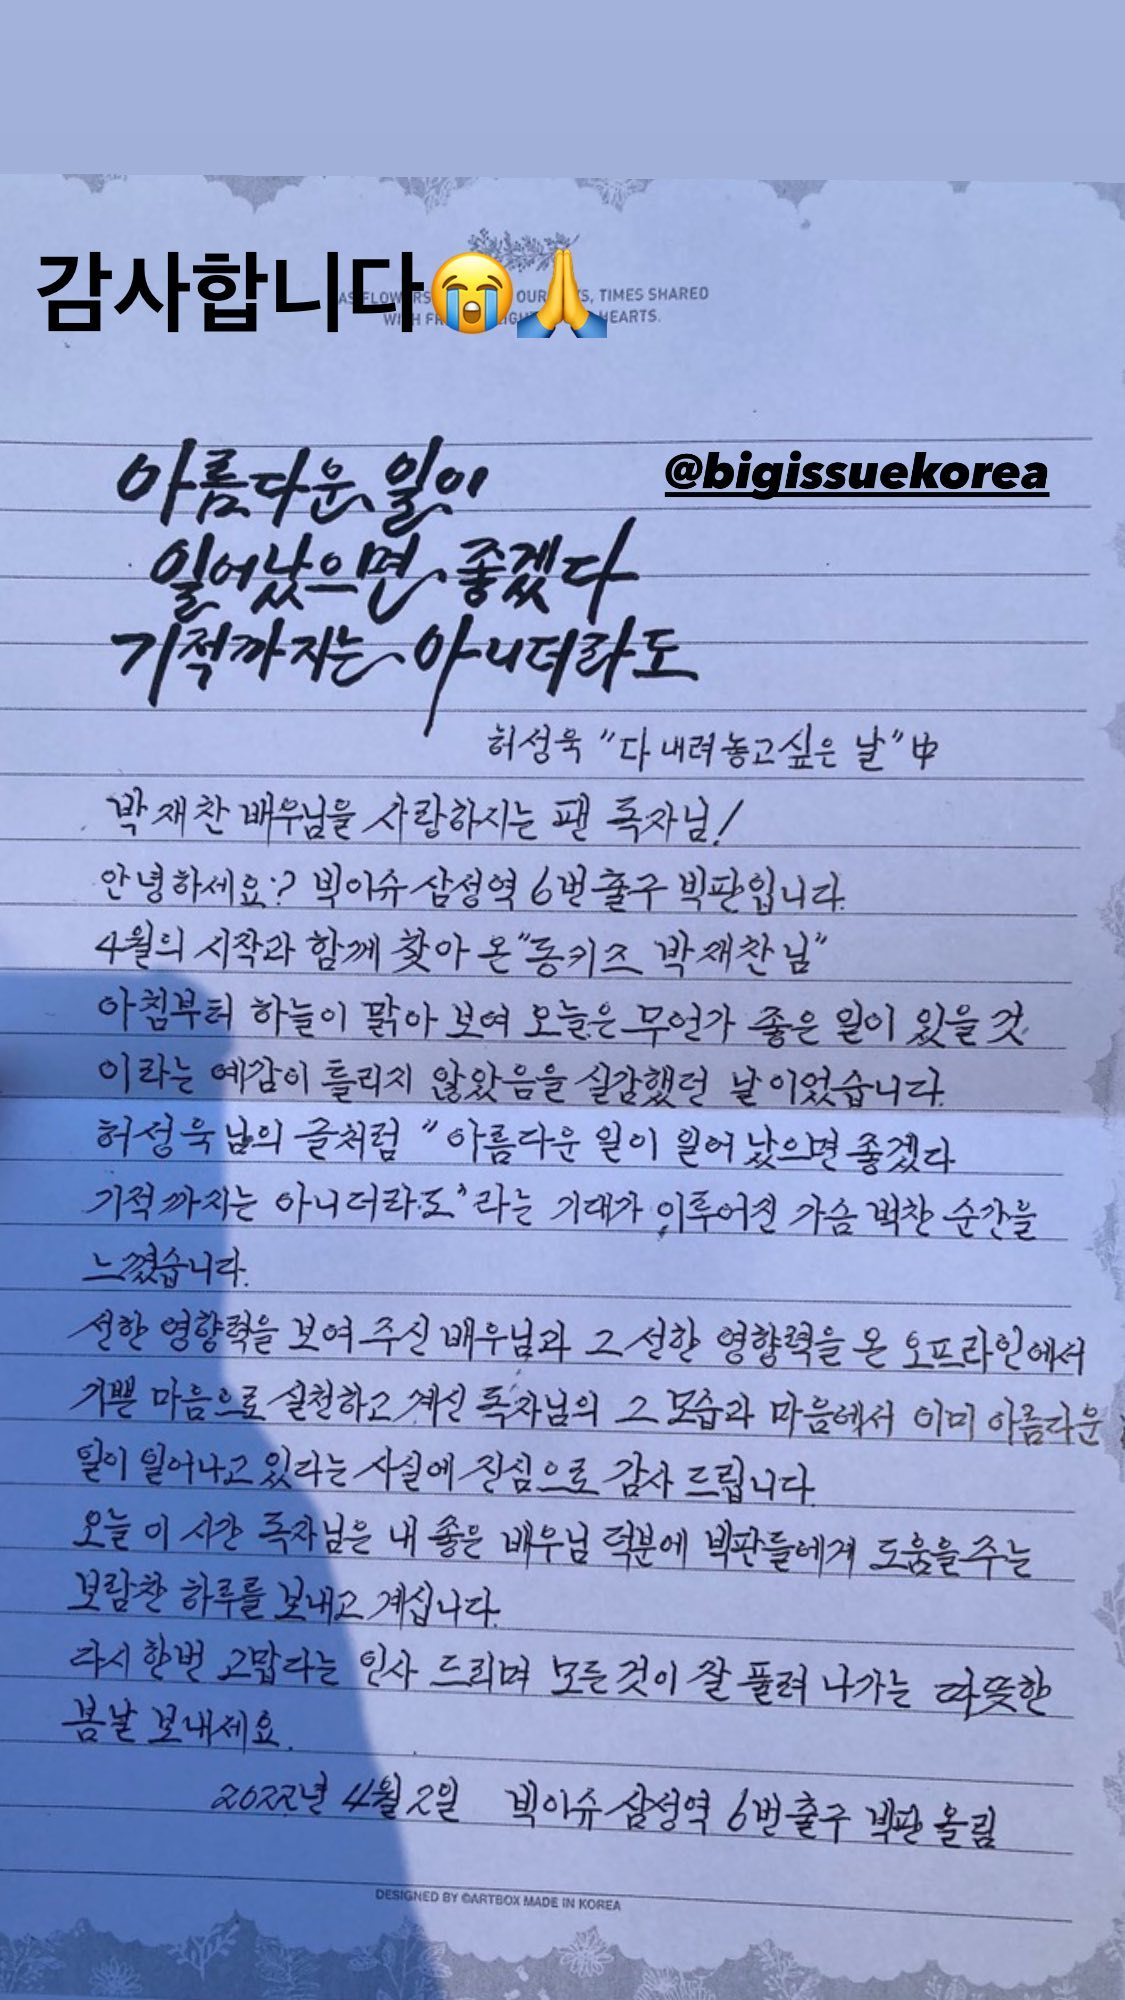 감사합니다😭🙏
AS FLOWERS OUR TIMES SHARED
WITH HEARTS.
@bigissuekorea
아름다운 일이
일어났으면 좋겠다
기적까지는 아니더라도
허성욱 "다 내려놓고 싶은 날" 中
박재찬 배우님을 사랑하지는 팬 독자님!
안녕하세요? 빅이슈 삼성역 6번출구 빅판입니다.
4월의 시작과 함께 찾아 온 "동키즈 박재찬님"
아침부터 하늘이 맑아 보여 오늘은 무언가 좋은 일이 있을 것
이라는 예감이 틀리지 않았음을 실감했던 날이었습니다.
허성욱님의 글처럼 "아름다운 일이 일어났으면 좋겠다
기적까지는 아니더라도"라는 기대가 이루어진 가슴 벅찬 순간을
느꼈습니다.
선한 영향력을 보여 주신 배우님과 그 선한 영향력을 온 오프라인에서
기쁜 마음으로 실천하고 계신 독자님의 그 모습과 마음에서 이미 아름다운
일이 일어나고 있다는 사실에 진심으로 감사 드립니다.
오늘 이 시간 독자님은 내 좋은 배우님 덕분에 빅판들에게 도움을 주는
보람찬 하루를 보내고 계십니다.
다시 한번 고맙다는 인사 드리며 모든 것이 잘 풀려 나가는 따뜻한
봄날 보내세요.
2022년 4월 2일 빅이슈 삼성역 6번출구 빅판 올림
DESIGNED BY ©ARTBOX MADE IN KOREA